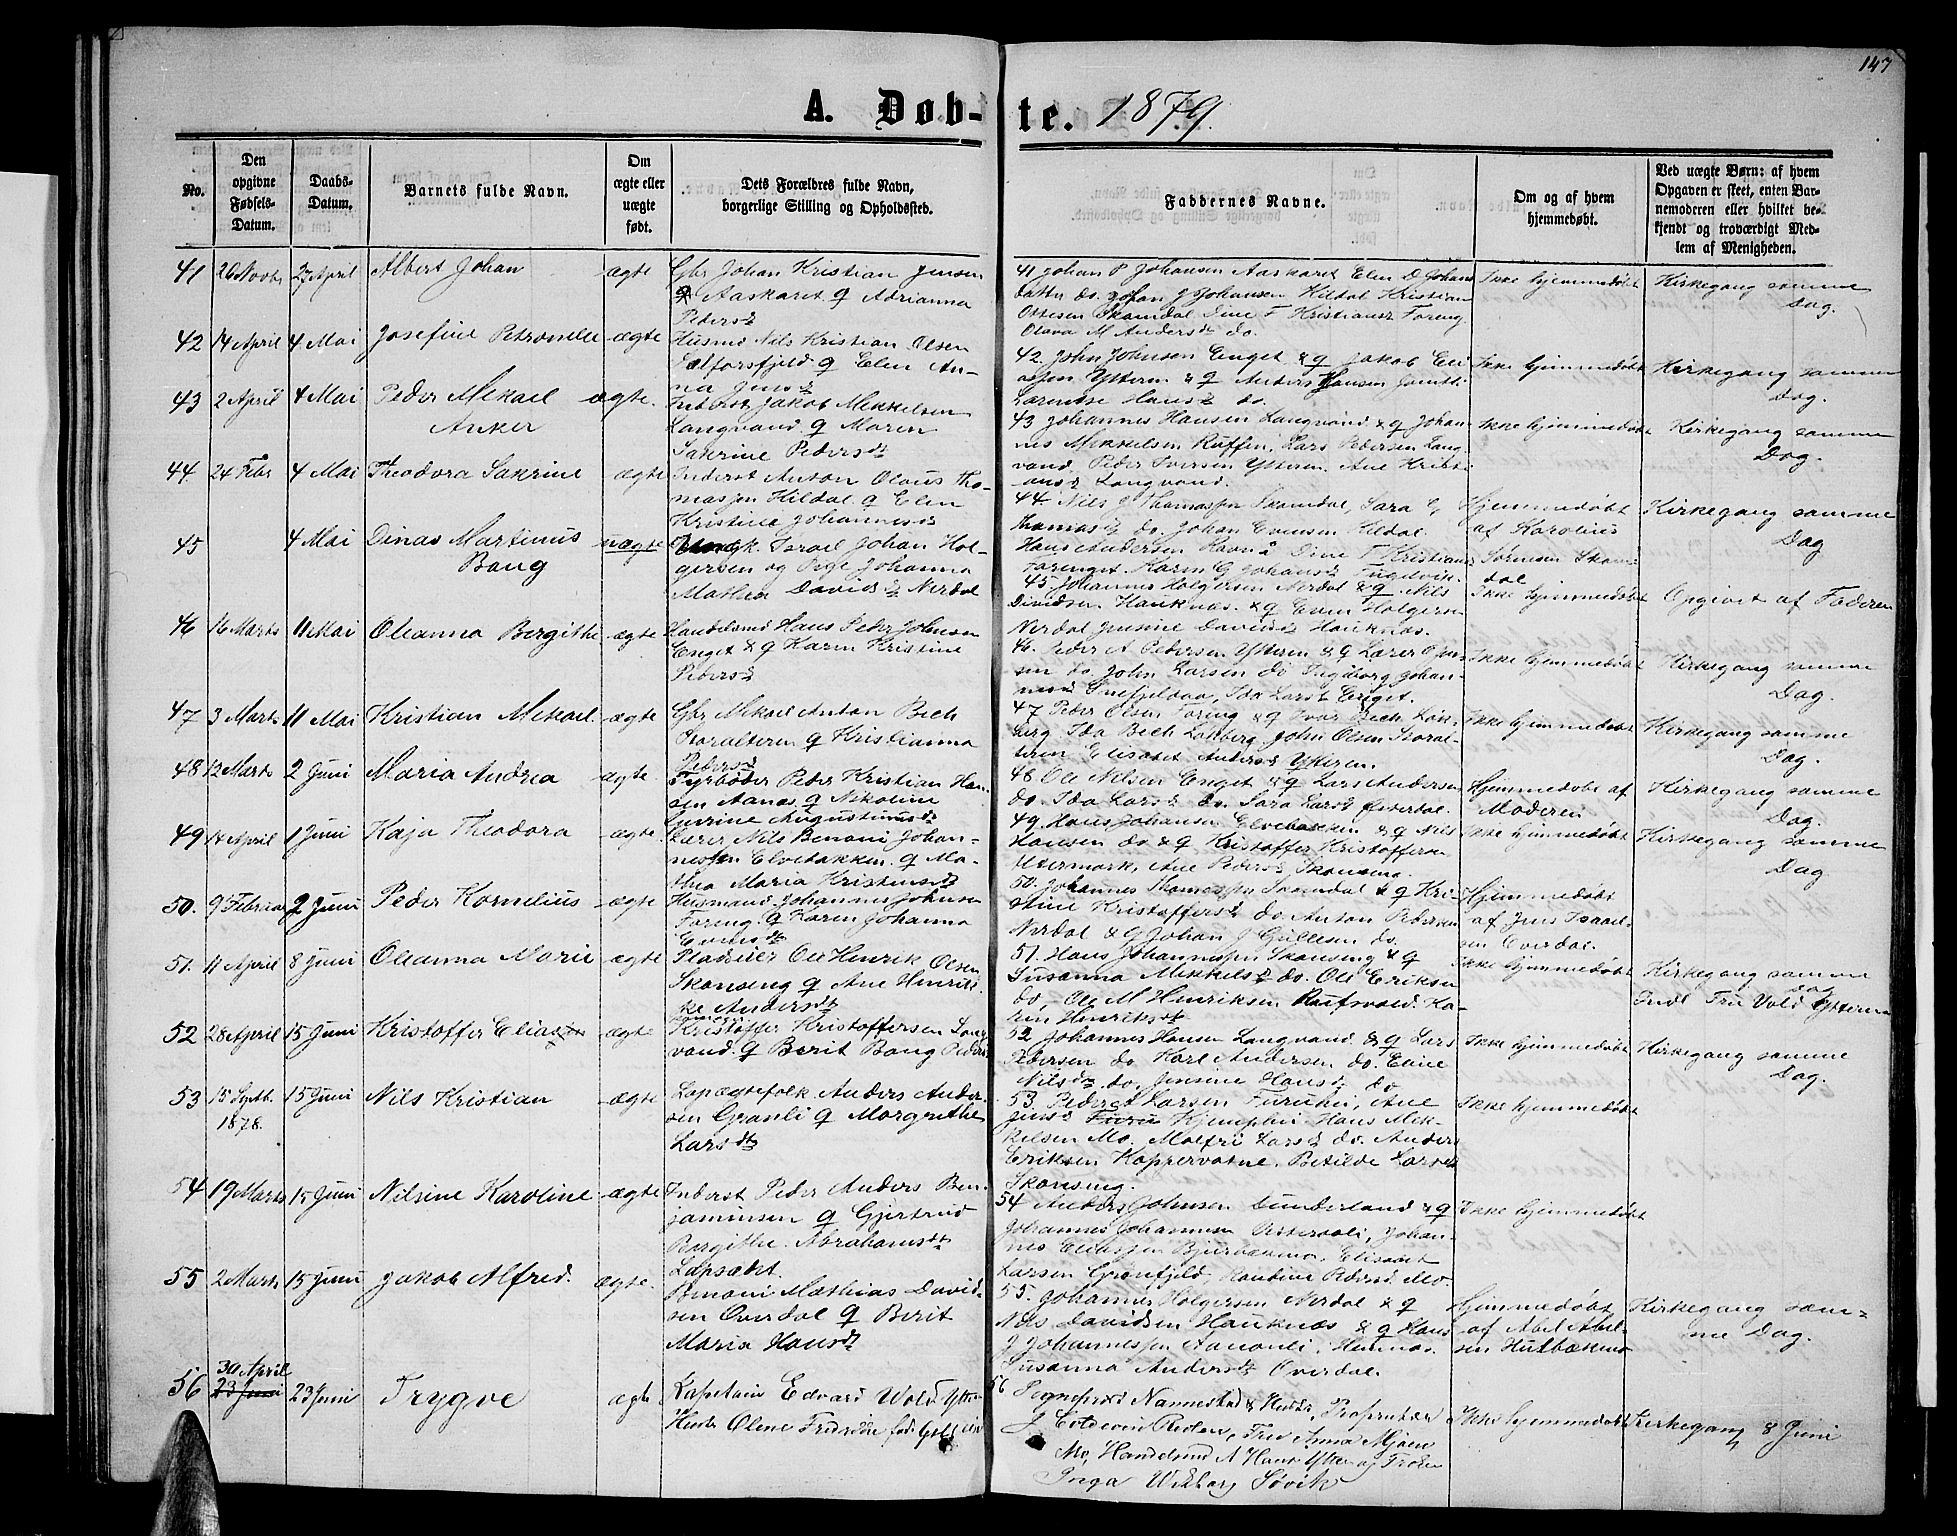 147
A. Døb-te. 1879.
No.
Den opgivne Fødsels-Datum.
Daabs-Datum.
Barnets fulde Navn.
Om ægte eller uægte født.
Dets Forældres fulde Navn, borgerlige Stilling og Opholdssted.
Faddernes Navne.
Om og af hvem hjemmedøbt.
Ved uægte Børn: af hvem Opgaven er skeet, enten Barnemoderen eller hvilket bekjendt og troværdigt Medlem af Menigheden.
41 26 Novbr 27 April Albert Johan ægte Gbr Johan Kristian Jensen
Aaskaret & Adrianna
Pedersd
41 Johan P Johansen Aaskaret Elen D Johans
datter do. Johan J Johansen Hildal Kristian
Ottesen Skamdal Dine F Kristiansd Foreng
Olava M Andersdt do.
Ikke hjemmedøbt
Kirkegang samme
Dag.
42 14 April 4 Mai Josefine Petronelle ægte Husmd Nils Kristian Olsen
& Elen An-
na Jensd
42. John Johnsen Enget, & q Jakob Eli-
assen Ytteren & q Anders Hansen
Larentse Hansd do.
Ikke hjemmedøbt
Kirkegang samme
Dag.
43 2 April 4 Mai Peder Mekael ægte. Inderst Jakob Mikkelsen
Anker Langvand & Maren
Sakrine Pedersdt
43 Johannes Hansen Langvand & q Johan
nes Mikkelsen Ruffen, Lars Pedersen Lang
vand, Peder Iversen Ytteren, Ane Kristi-
ansd Langvand.
Ikke hjemmedøbt
Kirkegang samme
Dag.
44 24 Febr 4 Mai Theodora Sakrine ægte Inderst Anton Olaus Tho-
massen Hildal & Elen
Kristine Johannesd
44. Nils J Thomassen Skamdal, Sara E,
Thomasd do. Johan Evensen Hildal
Hans Andersen Havnå Dine F Kristiansd
Forenget. Karen G Johansd
Hjemmedøbt
af Karolius
Sørensen Skam
dal
Kirkegang samme
Dag
45 4 Mai Dinas Martinus uægte Israel Johan Hol-
Bang gersen og Pige Johanna
Mathea Davidsd Nerdal
45. Johannes Holgersen Nerdal & q Nils
Davidsen Hauknæs. & q Even Holgersen
Nerdal Jensine Davidsd Hauknæs.
Ikke hjemmedøbt
Opgivet af Faderen
46 16 Marts 11 Mai Oleanna Bergithe ægte Handelsmd Hans Peder Johnsen
Enget & q Karen Kristine
Pedersd
46. Peder A Pedersen Ytteren & q Lærer P Jen-
sen do. John Larsen do Ingeborg Johan-
nesd Snefjeldaa, Ida Larsd Enget.
Ikke hjemmedøbt
Kirkegang samme
Dag.
47 3 Marts 11 Mai Kristian Mekael. ægte Gbr Mekael Anton Bech
Storalteren & Kristianna
Pedersd
47 Peder Olsen Foreng & q Ivar Bech Løk-
berg Ida Bech Løkberg John Olsen Storal-
teren Elisabet Andersd Ytteren.
Ikke hjemmedøbt
Kirkegang samme
Dag.
48 12 Marts 2 Juni Maria Andrea ægte Fyrbøder Peder Kristian Han-
sen Aanæs & Nikoline
Augustinusd
48 Ole Nilsen Enget & q Lars Andersen
do. Ida Larsd do. Sara Larsd Østerdal.
Hjemmedøbt af
Moderen
Kirkegang samme
Dag.
49 14 April 1 Juni Kaja Theodora ægte Lærer Nils Benoni Johan-
nessen Elvebakken. & Ma-
thea Maria Kristensd
49 Hans Johansen Elvebakken & q Nils
Hansen do & q Kristoffer Kristoffersen
Utermark, Ane Pedersd Skonseng.
Ikke hjemmedøbt
Kirkegang samme
Dag
50. 9 Februar 2 Juni Peder Kornelius ægte Husmand Johannes Johnsen
Foreng. & Karen Johanna
Evensdt
50. Johannes Thomassen Skamdal & q Kri-
stine Kristoffersd do. Anton Pedersen
Nerdal & q Johan J Gullesen do.
Hjemmedøbt
af Jens Israel-
sen Overdal.
51. 11 April 8 Juni Oleanna Marie ægte Pladseier Ole Henrik Olsen
Skonseng & Ane Henrik-
ke Andersdt
51. Hans Johannessen Skonseng & q
Susanna Mikkelsd do. Ole Eriksen
do, Ole M Henriksen Raufvald. Ka-
ren Henriksdt
Ikke hjemmedøbt
Kirkegang samme
Dag
Indl Fru Vold Ytteren
52 28 April 15 Juni Kristoffer Elias ægte Kristoffer Kristoffersen Lang
vand. & Berit Bang Pedersd
52 Johannes Hansen Langvand. & q Lars
Pedersen do. Karl Andersen do. Eline
Nilsdt do. Jensine Hansd do
Ikke hjemmedøbt
Kirkegang samme
Dag.
53 15 Septb 15 Juni Nils Kristian ægte Lapægtefolk Anders Ander-
1878. sen Granli & Margrethe
Larsdt
53. Peder Larsen Furuhei, Ane
Jensd Furu Kjemphei Hans Mik-
kelsen Mo. Malfri Larsd do. Anders
Eriksen Koppervatne. Betilde Larsd
Skonseng.
Ikke hjemmedøbt
54 19 Marts 15 Juni Nilsine Karoline ægte Inderst Peder Anders Ben-
jaminsen & Gjertrud
Bergithe. Abrahamsdt
Lapsækt.
54 Anders Johnsen Lunderland & q
Johannes Johannesen Østerdali, Johan-
nes Eliassen Bjurbækmo. Elisabet
Larsen Grønfjeld, Randine Pedersd Mo
Ikke hjemmedøbt
55 2 Marts 15 Juni Jakob Alfred. ægte. Benoni Mathias David-
sen Overdal & Berit
Maria Hansdt
55. Johannes Holgersen Nerdal & q
Nils Davidsen Hauknæs & q Hans
J Johannessen Hemnæs.
Susanna Andersdt Overdal.
Hjemmedøbt
af Abel Abel-
sen Hutbækmo
Kirkegang sam-
me Dag.
30 April
56 23 Juni 23 Juni Trygve ægte Kaptein Edvard Wold Ytter
Hustr Oline Fredrikke født
56 Sogneprest Nannestad & Hustr, Proprietær
J Coldevin Fru Anna Mjøen
Mo, Handelsmd A Hans Ytter og Frøken
Inga Wikborg Søvik
Ikke hjemmedøbt
Kirkegang 8 Juni